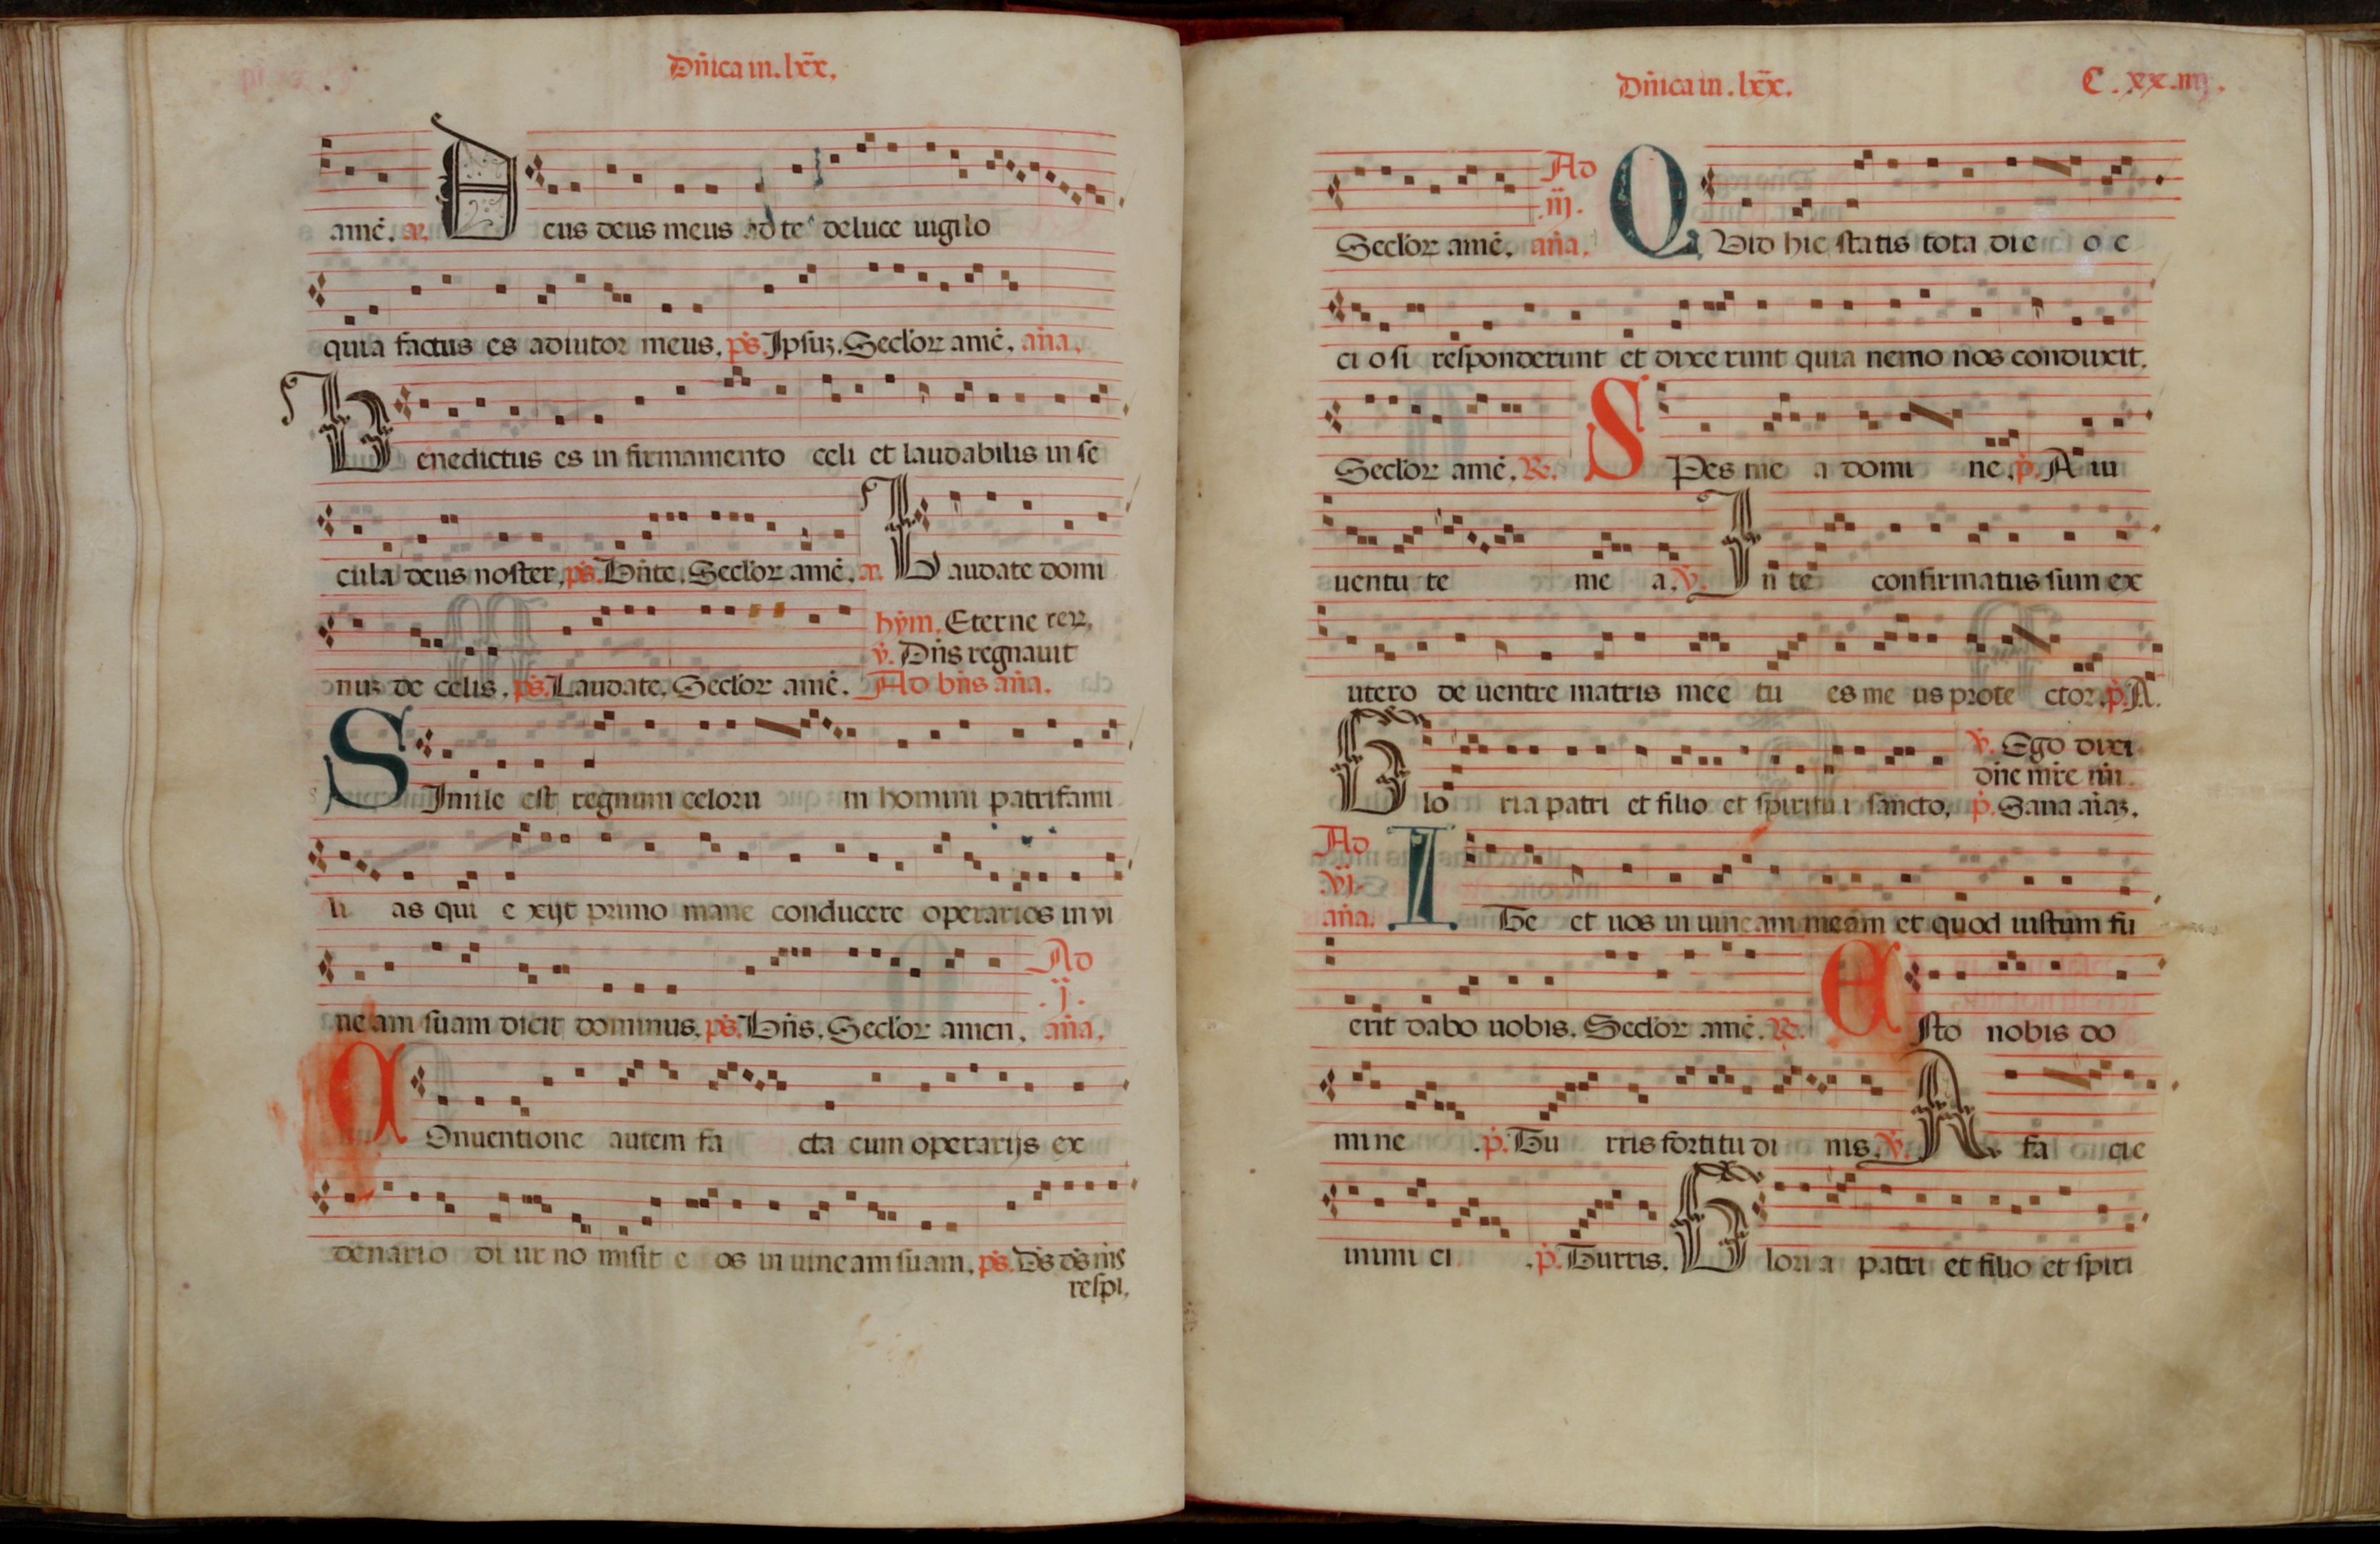 Dn̄ica in .lxx̄.
amē. a. Deus deus meus ad te deluce uigilo
quia factus es adiutor meus. ps̄. Ipsuȝ. Seclōꝝ amē. an̄a.
Benedictus es in firmamento celi et laudabilis in se
cula deus noster. ps̄. Bn̄te. Seclōꝝ amē. a. Laudate domi
nuȝ de celis. ps̄. Laudate. Seclōꝝ amē.
hym. Eterne reꝝ.
v̄. Dn̄s regnauit
Ad bn̄s an̄a.
SImile est regnum celoru m homini patrifami
li as qui e xijt primo mane conducere operarios in vi
neam suam dicit dominus. ps̄. Bn̄s. Seclōꝝ amen.
Ad
.j.
an̄a.
COnuentione autem fa cta cum operarijs ex
denario di ur no misit e os in uineam suam. ps̄. Ds̄ ds̄ ms̄
respi.
Dn̄ica in .lxx̄.
C.xx.iiij.
Seclōꝝ amē. an̄a.
Ad
.iij.
QVid hic statis tota die o c
ci o si responderunt et dixe runt quia nemo nos conduxit.
Seclōꝝ amē. R̄. SPes me a domi ne. p̄. A iu
uentu te me a. v̄. In te confirmatus sum ex
utero de uentre matris mee tu es me us prote ctor. p̄. A.
Glo ria patri et filio et spiritu i sancto.
v̄. Ego dixi
dn̄e mr̄e mi.
p̄. Sana an̄aȝ.
Ad
.vi.
an̄a.
ITe et uos in uineam meam et quod iustum fu
erit dabo uobis. Seclōꝝ amē. R̄. ESto nobis do
mi ne .p̄. Tu rris fortitu di nis. v̄. A fa cie
inimi ci .p̄. Turris. Gloria patri et filio et spiri